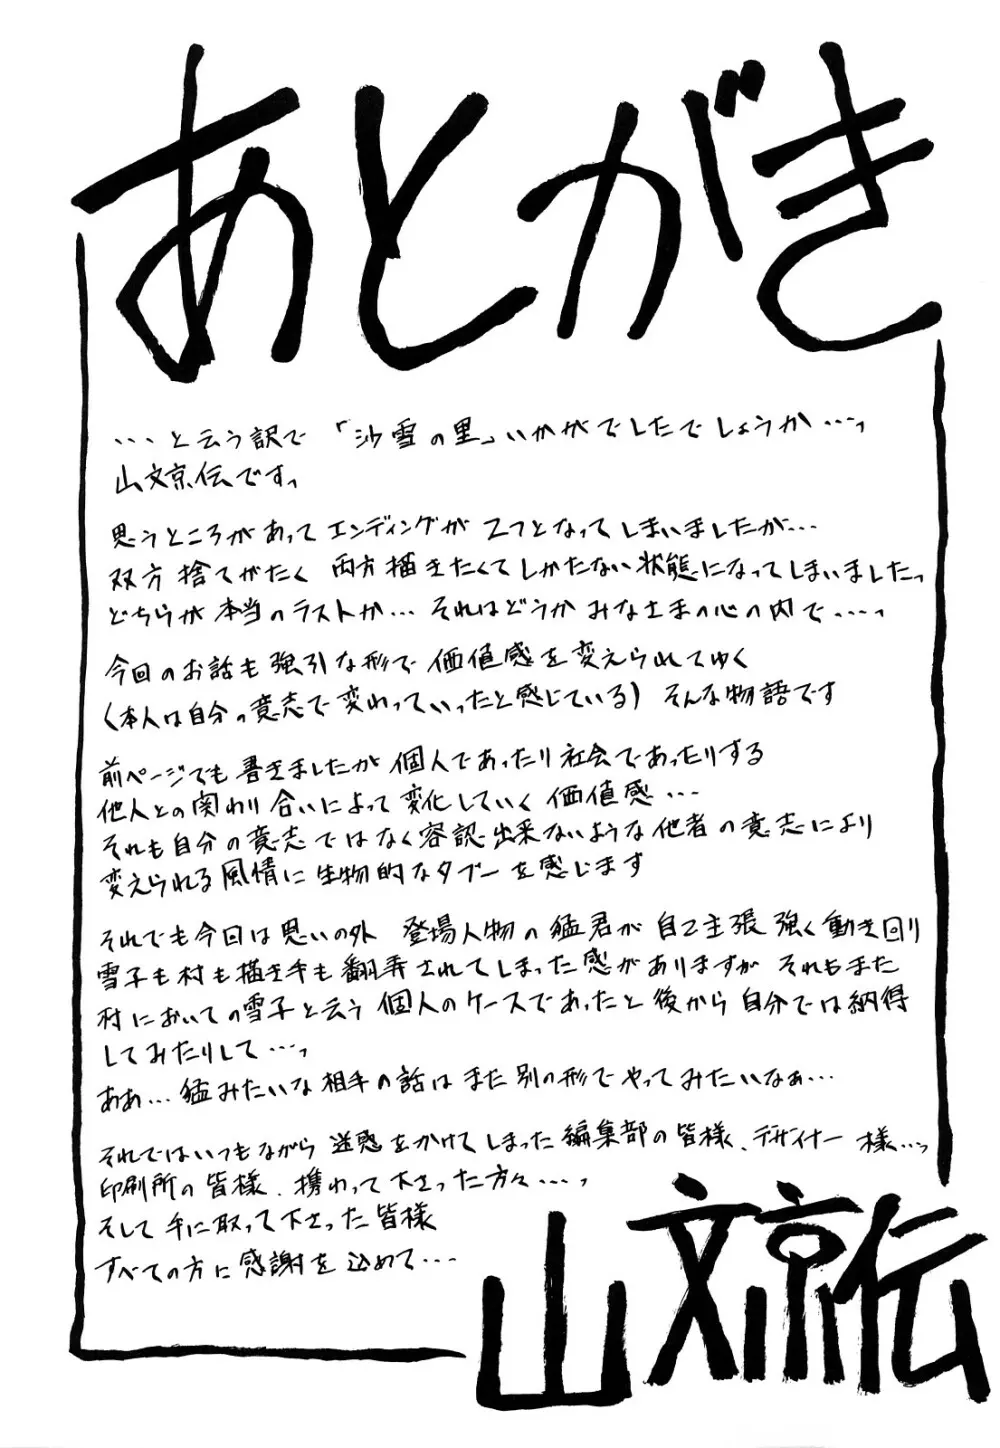 あとがき
…と云う訳で「沙雪の里」いかがでしたでしょうか…っ
山文京伝ですっ
思うところがあってエンディングが2つとなってしまいましたが…
双方捨てがたく両方描きたくてしかたない状態になってしまいましたっ
どちらが本当のラストか…それはどうかみなさまの心の内で…っ
今回のお話も強引な形で価値感を変えられてゆく
(本人は自分の意志で変わっていったと感じている)そんな物語です
前ページでも書きましたが個人であったり社会であったりする
他人との関わり合いによって変化していく価値感…
それも自分の意志ではなく容認出来ないような他者の意志により
変えられる風情に生物的なタブーを感じます
それでも今回は思いの外 登場人物の猛君が自己主張強く動き回り
雪子も村も描き手も翻弄されてしまった感がありますがそれもまた
村においての雪子と云う個人のケースであったと後から自分では納得
してみたりして…っ
ああ…猛みたいな相手の話はまた別の形でやってみたいなぁ…
それではいつもながら迷惑をかけてしまった編集部の皆様、デザイナー様…っ
印刷所の皆様、携わって下さった方々…っ
そして手に取って下さった皆様
すべての方に感謝を込めて…
山文京伝